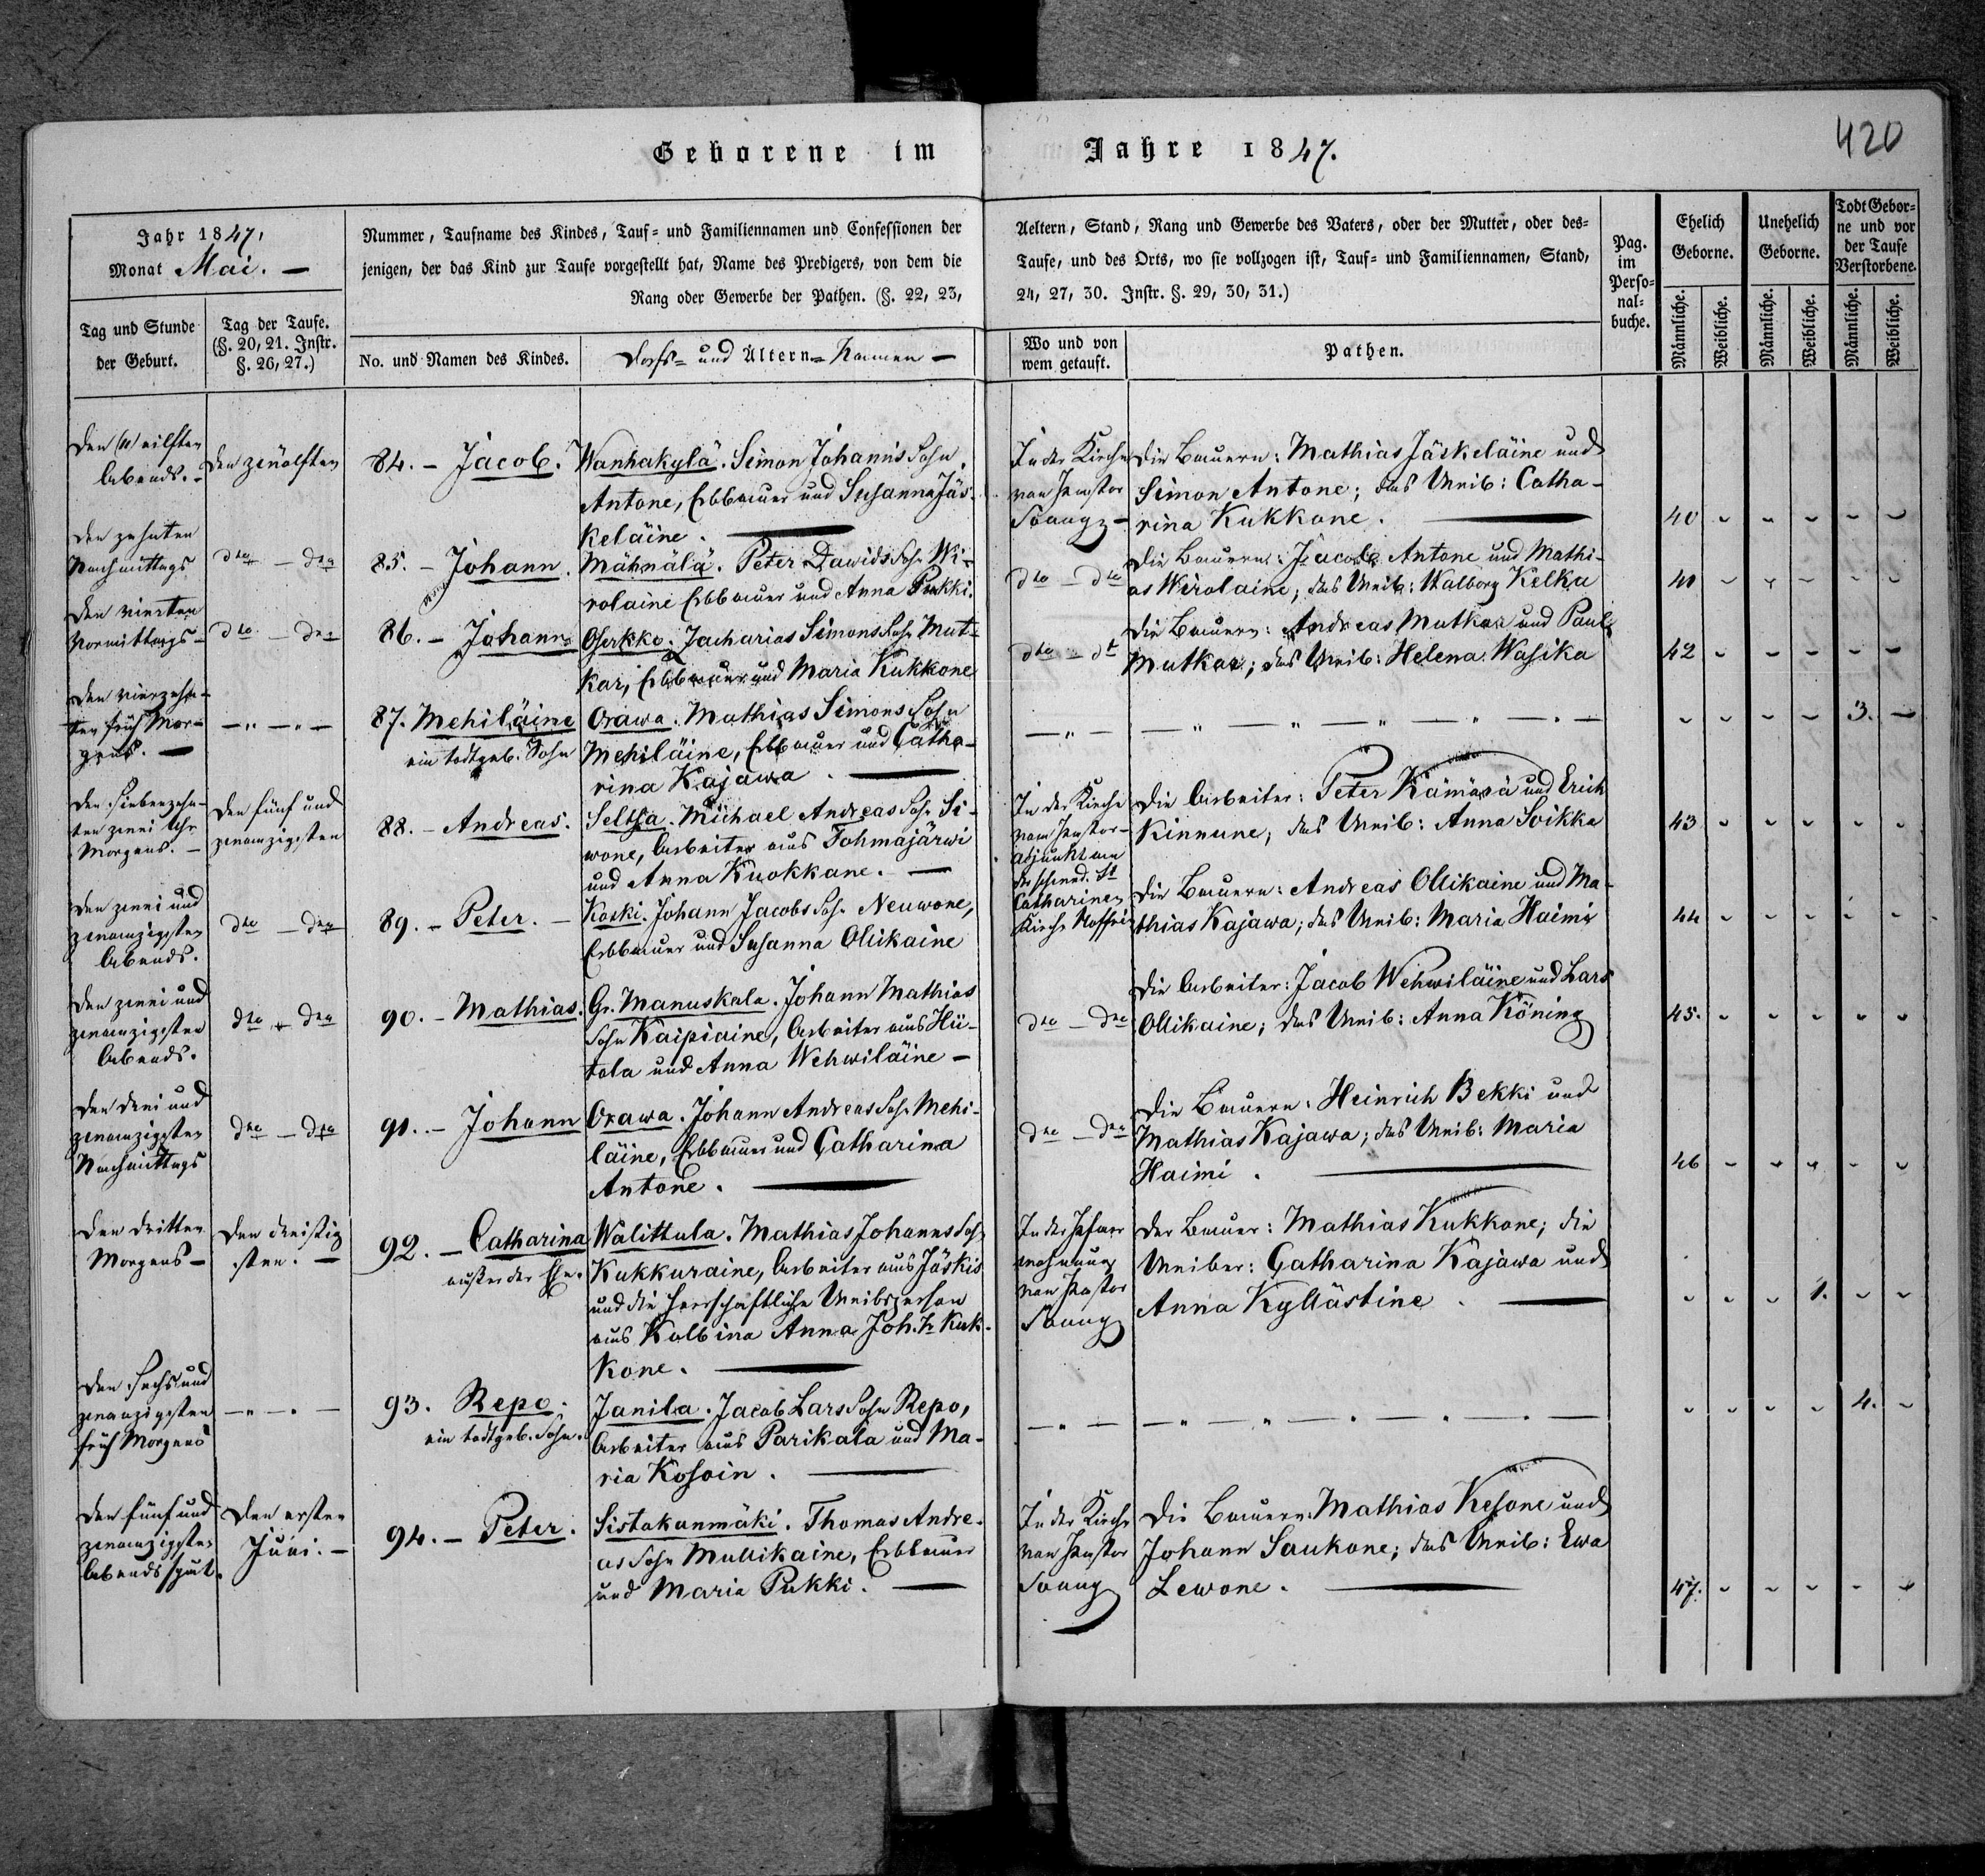 Geborene im Jahre 1847.
420
Jahr 1847,
Monat Mai. —
Nummer, Taufname des Kindes, Tauf- und Familiennamen und Confessionen der
jenigen, der das Kind zur Taufe vorgestellt hat, Name des Predigers, von dem die
Rang oder Gewerbe der Pathen. (§. 22, 23,
Tag und Stunde
der Geburt.
Tag der Taufe.
(§. 20, 21. Instr.
§. 26, 27.)
No. und Namen des Kindes.
Dorfs- und Ältern-Namen —
Aeltern, Stand, Rang und Gewerbe des Vaters, oder der Mutter, oder des-
Taufe, und des Orts, wo sie vollzogen ist, Tauf- und Familiennamen, Stand,
24, 27, 30. Instr. §. 29, 30, 31.)
Wo und von
wem getauft.
Pathen.
Pag.
im
Perso-
nal-
buche.
Ehelich
Geborne.
Unehelich
Geborne.
Todt Gebor-
ne und vor
der Taufe
Verstorbene.
Männliche.
Weibliche.
Männliche.
Weibliche.
Männliche.
Weibliche.
Den (11) eilften
Abends. -
Den zwölften
84. - Jacob.
Wanhakylä. Simon Johanns Sohn
Antone, Erbbauer und Susanna Jäs-
keläine. —
In der Kirche
von Pastor
Die Bauern: Mathias Jäskeläine und
Simon Antone; das Weib: Catha-
rina Kukkone. —
40 - - - - -
Den zehnten
Nachmittags
dto - dto
85. - Johann.
Mähnälä. Peter Dawids Sohn Wi-
rolaine Erbbauer und Anna Pukki.
dto - dto
Die Bauern: Jacob Antone und Mathi-
as Wirolaine; das Weib: Walborg Kelka
41 - - - - -
Den vierten
Vormittags -
dto - dto
86. - Johann
Oserkko. Zacharias Simons Sohn Mut-
kar, Erbbauer und Maria Kukkone
dto - dt
Die Bauern: Andreas Mutkar und Paul
Mutkar; das Weib: Helena Wasika
42 - - - - -
Den vierzehn-
ten früh Mor-
gens. —
— " — " —
87. Mehiläine
ein todtgeb. Sohn
Orawa. Mathias Simons Sohn
Mehiläine, Erbbauer und Catha-
rina Kajawa. —
— " — — " — " — " — " — " —
- - - - 3. -
Den siebenzehn-
ten zwei Uhr
Morgens. -
Den fünf und
zwanzigsten
88. - Andreas.
Seltsa. Michael Andreas Sohn Si-
wone, Arbeiter aus Tohmajärwi
und Anna Kuokkane. —
In der Kirche
vom Pastor-
adjunkt an
der schwed. St
Catharinen
Kirche
Die Arbeiter: Peter Kämärä und Erich
Kinnune; das Weib: Anna Soikka
43 - - - - -
Den zwei und
zwanzigsten
Abends.
dto - dto
89. - Peter. -
Koski. Johann Jacobs Sohn Neuwone,
Erbbauer und Susanna Ollikaine
Die Bauern: Andreas Ollikaine und Ma-
thias Kajawa; das Weib: Maria Haimi
44 - - - - -
Den zwei und
zwanzigsten
Abends.
dto - dto
90. - Mathias.
Gr. Manuskala. Johann Mathias
Sohn Kaipiaine, Arbeiter aus Hii-
tola und Anna Wehwiläine -
dto - dto
Die Arbeiter: Jacob Wehwiläine und Lars
Ollikaine; das Weib: Anna Köning
45. - - - - -
Den drei und
zwanzigsten
Nachmittags
dto - dto
91. - Johann
Orawa. Johann Andreas Sohn Mehi-
läine, Erbbauer und Catharina
Antone. —
dto - dto
Die Bauern: Heinrich Bekki und
Mathias Kajawa; das Weib: Maria
Haimi. —
46 - - - - -
Den dritten
Morgens -
Den dreißig
sten. -
92. - Catharina
außer der Ehe.
Walittula. Mathias Johanns Sohn
Kukkuraine, Arbeiter aus Jäskis
und die herrschaftliche Weibsperson
aus Kolbina Anna Joh. Kuk-
kone. —
In der Pfarr
wohnung
von Pastor
Der Bauer: Mathias Kukkone; die
Weiber: Catharina Kajawa und
Anna Kyllästine. —
- - - 1. - -
Den sechs und
zwanzigsten
früh Morgens
— " — " —
93. Repo.
ein todtgeb. Sohn.
Janila. Jacob Lars Sohn Repo,
Arbeiter aus Parikala und Ma-
ria Kosoin. —
— " — — " — " — " — " — " —
- - - - 4. -
Den fünf und
zwanzigsten
Abends spät.
Den ersten
Juni. -
94. - Peter.
Sistakanmäki. Thomas Andre-
as Sohn Mullikaine, Erbbauer
und Maria Pukki. —
In der Kirche
von Pastor
Die Bauern: Mathias Kesone und
Johann Saukone; das Weib: Ewa
Lewone. —
47. - - - - -